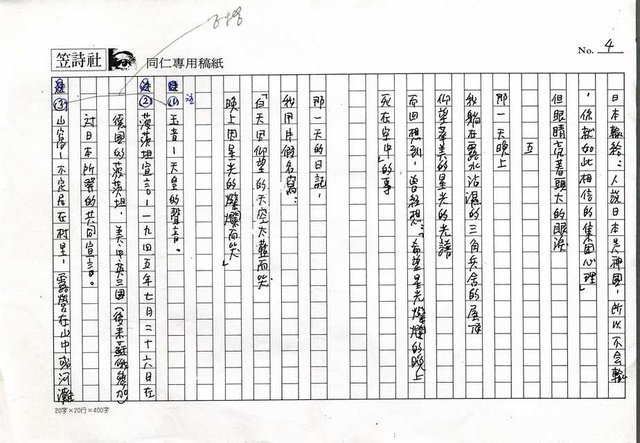 笠詩社
同仁專用稿紙
No. 4
日本輸給:人說日本是神國,所以不會輸
,依然如此相信的集團心理」
但眼睛亮着頭大的眼淚
五
那一天晚上
我躺在露水沾濕的三角兵舍的屋頂
仰望華美的星光的光譜
而回想到,曾經想:「希望星光燦爛的晚上
死在空中」的事
那一天的日記,
我用片假名寫:
「白天因仰望的天空太藍而哭
晚上因星光的燦爛而哭」
註
(1) 玉音—天皇的聲音。
(2) 波茨坦宣言。—一九四五年七月二十六日在
德國的波茨坦,美、中、英三國(後來蘇俄參加)
對日本所發的共同宣言。
(3) 山窩—不定居在村里,露營在山中或河灘
20字×20行=400字